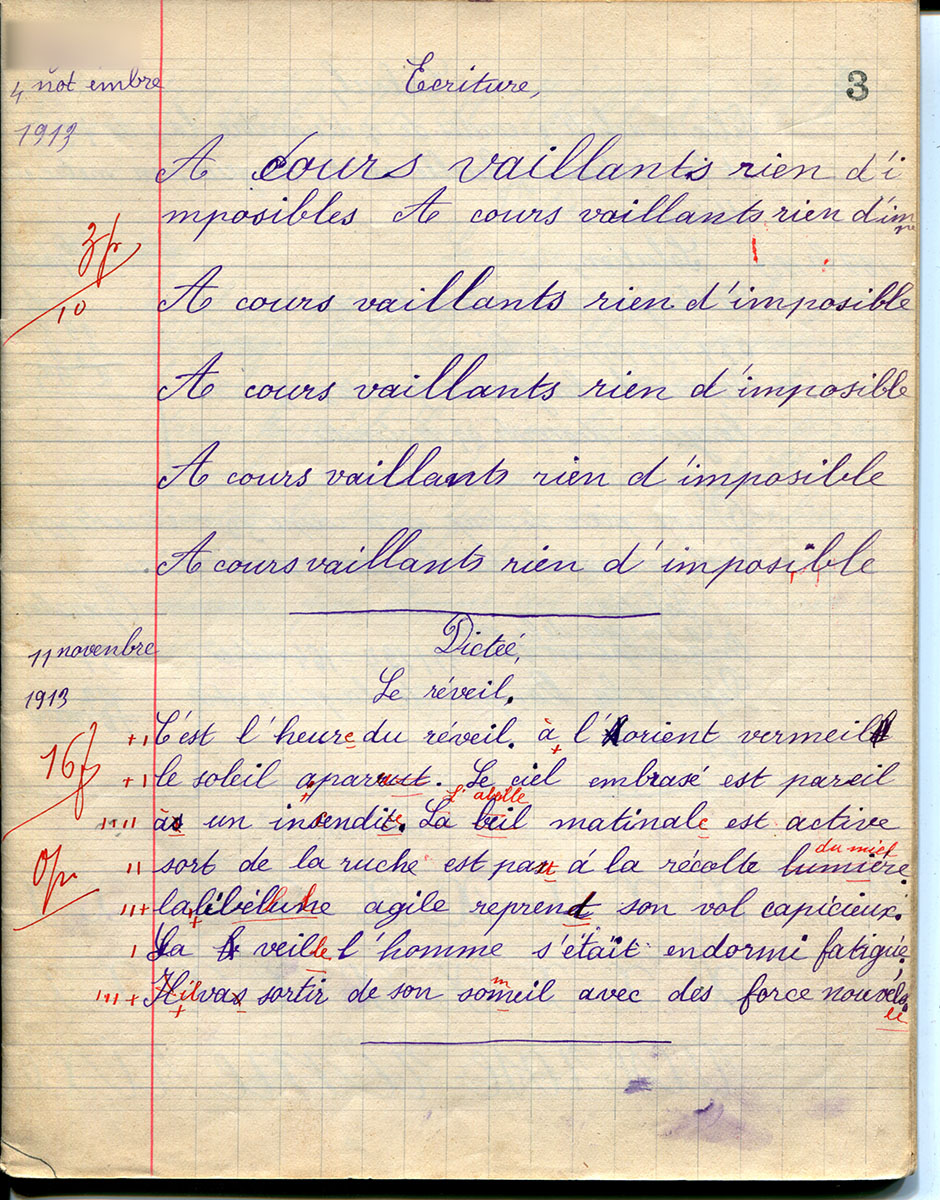 3
4 not embre
1913
Ecriture,
A cours vaillants rien d'i
mposibles A cours vaillants rien d'im
3p
10
A cours vaillants rien d'imposible
A cours vaillants rien d'imposible
A cours vaillants rien d'imposible
A cours vaillants rien d'imposible
11 novenbre
1913
Dicteé,
Le réveil.
16f
0p
C'est l'heure du réveil. à l'orient vermeil
le soleil aparrut. Le ciel embrasé est pareil
l'abeille
às un incendite. La beil matinale est active
du miel
sort de la ruche est part á la récolte lumière.
la libéllule agile reprend son vol capicieux.
La veille l'homme s'était endormi fatigué;
Il vas sortir de son someil avec des force nouvels.
m
le